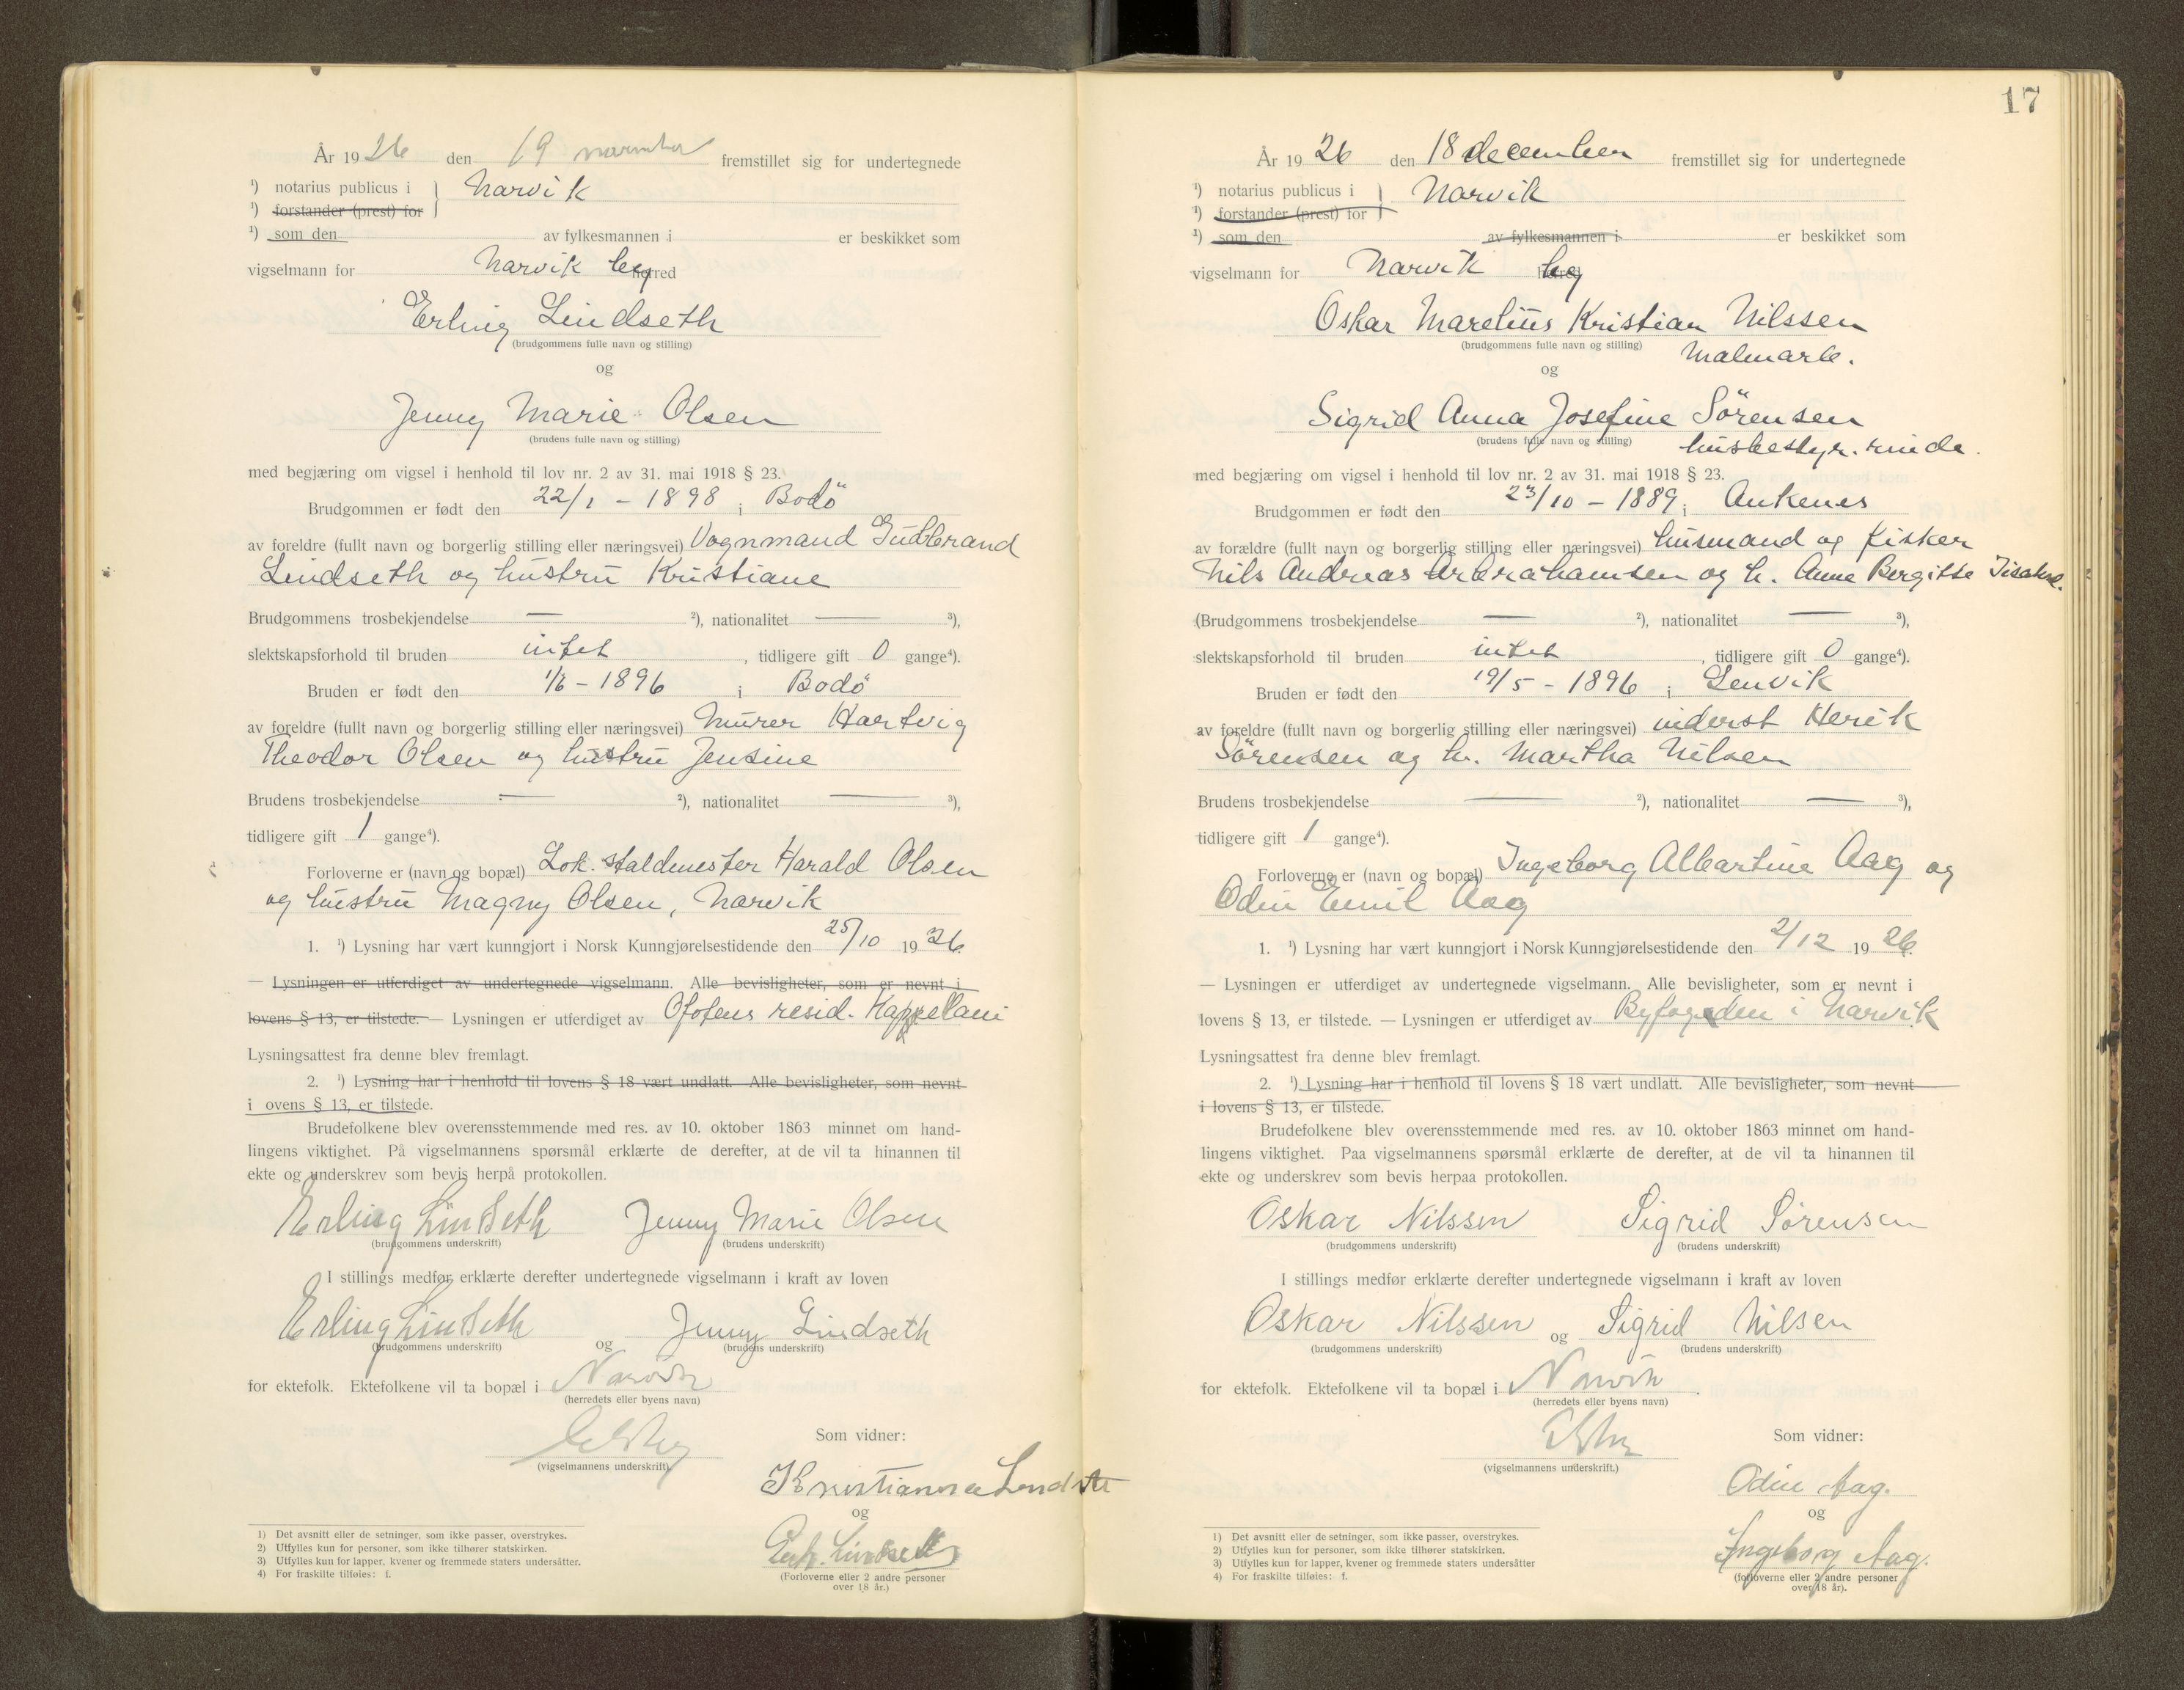 År 1926 den 19 november fremstillet sig for undertegnede
¹) notarius publicus i } Narvik
¹) forstander (prest) for
¹) som den av fylkesmannen i er beskikket som
vigselmann for Narvik by herred
Erling Lindseth
(brudgommens fulle navn og stilling)
og
Jenny Marie Olsen
(brudens fulle navn og stilling)
med begjæring om vigsel i henhold til lov nr. 2 av 31. mai 1918 § 23.
Brudgommen er født den 22/1 - 1898 i Bodö
av foreldre (fullt navn og borgerlig stilling eller næringsvei) Vognmand Gudbrand
Lindseth og hustru Kristiane
Brudgommens trosbekjendelse — ²), nationalitet — ³),
slektskapsforhold til bruden intet, tidligere gift 0 gange⁴).
Bruden er født den 1/6 - 1896 i Bodö
av foreldre (fullt navn og borgerlig stilling eller næringsvei) murer Hartvig
Theodor Olsen og hustru Jensine
Brudens trosbekjendelse — ²), nationalitet — ³),
tidligere gift 1 gange⁴).
Forloverne er (navn og bopæl) Lok. staldmester Harald Olsen
og hustru Magny Olsen, Narvik
1. ¹) Lysning har vært kunngjort i Norsk Kunngjørelsestidende den 25/10 1926.
— Lysningen er utferdiget av undertegnede vigselmann. Alle bevisligheter, som er nevnt i
lovens § 13, er tilstede. — Lysningen er utferdiget av Ofotens resid. Kappellani
Lysningsattest fra denne blev fremlagt.
2. ¹) Lysning har i henhold til lovens § 18 vært undlatt. Alle bevisligheter, som nevnt
i ovens § 13, er tilstede.
Brudefolkene blev overensstemmende med res. av 10. oktober 1863 minnet om hand-
lingens viktighet. På vigselmannens spørsmål erklærte de derefter, at de vil ta hinannen til
ekte og underskrev som bevis herpå protokollen.
Erling Lindseth Jenny Marie Olsen
(brudgommens underskrift) (brudens underskrift)
I stillings medfør erklærte derefter undertegnede vigselmann i kraft av loven
Erling Lindseth og Jenny Lindseth
(brudgommens underskrift) (brudens underskrift)
for ektefolk. Ektefolkene vil ta bopæl i Narvik
(herredets eller byens navn)
Som vidner:
(vigselmannens underskrift)
Kristianna Lindseth
og
Lindseth
(Forloverne eller 2 andre personer
over 18 år.)
1) Det avsnitt eller de setninger, som ikke passer, overstrykes.
2) Utfylles kun for personer, som ikke tilhører statskirken.
3) Utfylles kun for lapper, kvener og fremmede staters undersåtter.
4) For fraskilte tilføies: f.
17
År 1926 den 18 december fremstillet sig for undertegnede
¹) notarius publicus i } Narvik
¹) forstander (prest) for
¹) som den av fylkesmannen i er beskikket som
vigselmann for Narvik by herred
Oskar Marelius Kristian Nilssen
(brudgommens fulle navn og stilling) Malmarb.
og
Sigrid Anna Josefine Sörensen
(brudens fulle navn og stilling) husbestyr.rinde.
med begjæring om vigsel i henhold til lov nr. 2 av 31. mai 1918 § 23.
Brudgommen er født den 23/10 - 1889 i Ankenes
av forældre (fullt navn og borgerlig stilling eller næringsvei) husmand og fisker
Nils Andreas Abrahamsen og h. Anne Bergitte Isaks.
(Brudgommens trosbekjendelse — ²), nationalitet — ³),
slektskapsforhold til bruden intet, tidligere gift 0 gange⁴).
Bruden er født den 19/5 - 1896 i Lenvik
av foreldre (fullt navn og borgerlig stilling eller næringsvei) inderst Henrik
Sörensen og h. Martha Nilsen
Brudens trosbekjendelse — ²), nationalitet — ³),
tidligere gift 1 gange⁴).
Forloverne er (navn og bopæl) Ingeborg Albartine Aag og
Odin Emil Aag
1. ¹) Lysning har vært kunngjort i Norsk Kunngjørelsestidende den 2/12 1926.
— Lysningen er utferdiget av undertegnede vigselmann. Alle bevisligheter, som er nevnt i
lovens § 13, er tilstede. — Lysningen er utferdiget av Byfogden i Narvik
Lysningsattest fra denne blev fremlagt.
2. ¹) Lysning har i henhold til lovens § 18 vært undlatt. Alle bevisligheter, som nevnt
i lovens § 13, er tilstede.
Brudefolkene blev overensstemmende med res. av 10. oktober 1863 minnet om hand-
lingens viktighet. Paa vigselmannens spørsmål erklærte de derefter, at de vil ta hinannen til
ekte og underskrev som bevis herpaa protokollen.
Oskar Nilssen Sigrid Sörensen
(brudgommens underskrift) (brudens underskrift)
I stillings medfør erklærte derefter undertegnede vigselmann i kraft av loven
Oskar Nilssen og Sigrid Nilsen
(brudgommens underskrift) (brudens underskrift)
for ektefolk. Ektefolkene vil ta bopæl i Narvik.
(herredets eller byens navn)
Som vidner:
(vigselmannens underskrift.)
Odin Aag.
og
Ingeborg Aag.
(forloverne eller 2 andre personer
over 18 år).
1) Det avsnitt eller de setninger, som ikke passer, overstrykes.
2) Utfylles kun for personer, som ikke tilhører statskirken.
3) Utfylles kun for lapper, kvener og fremmede staters undersåtter
4) For fraskilte tilføies: f.